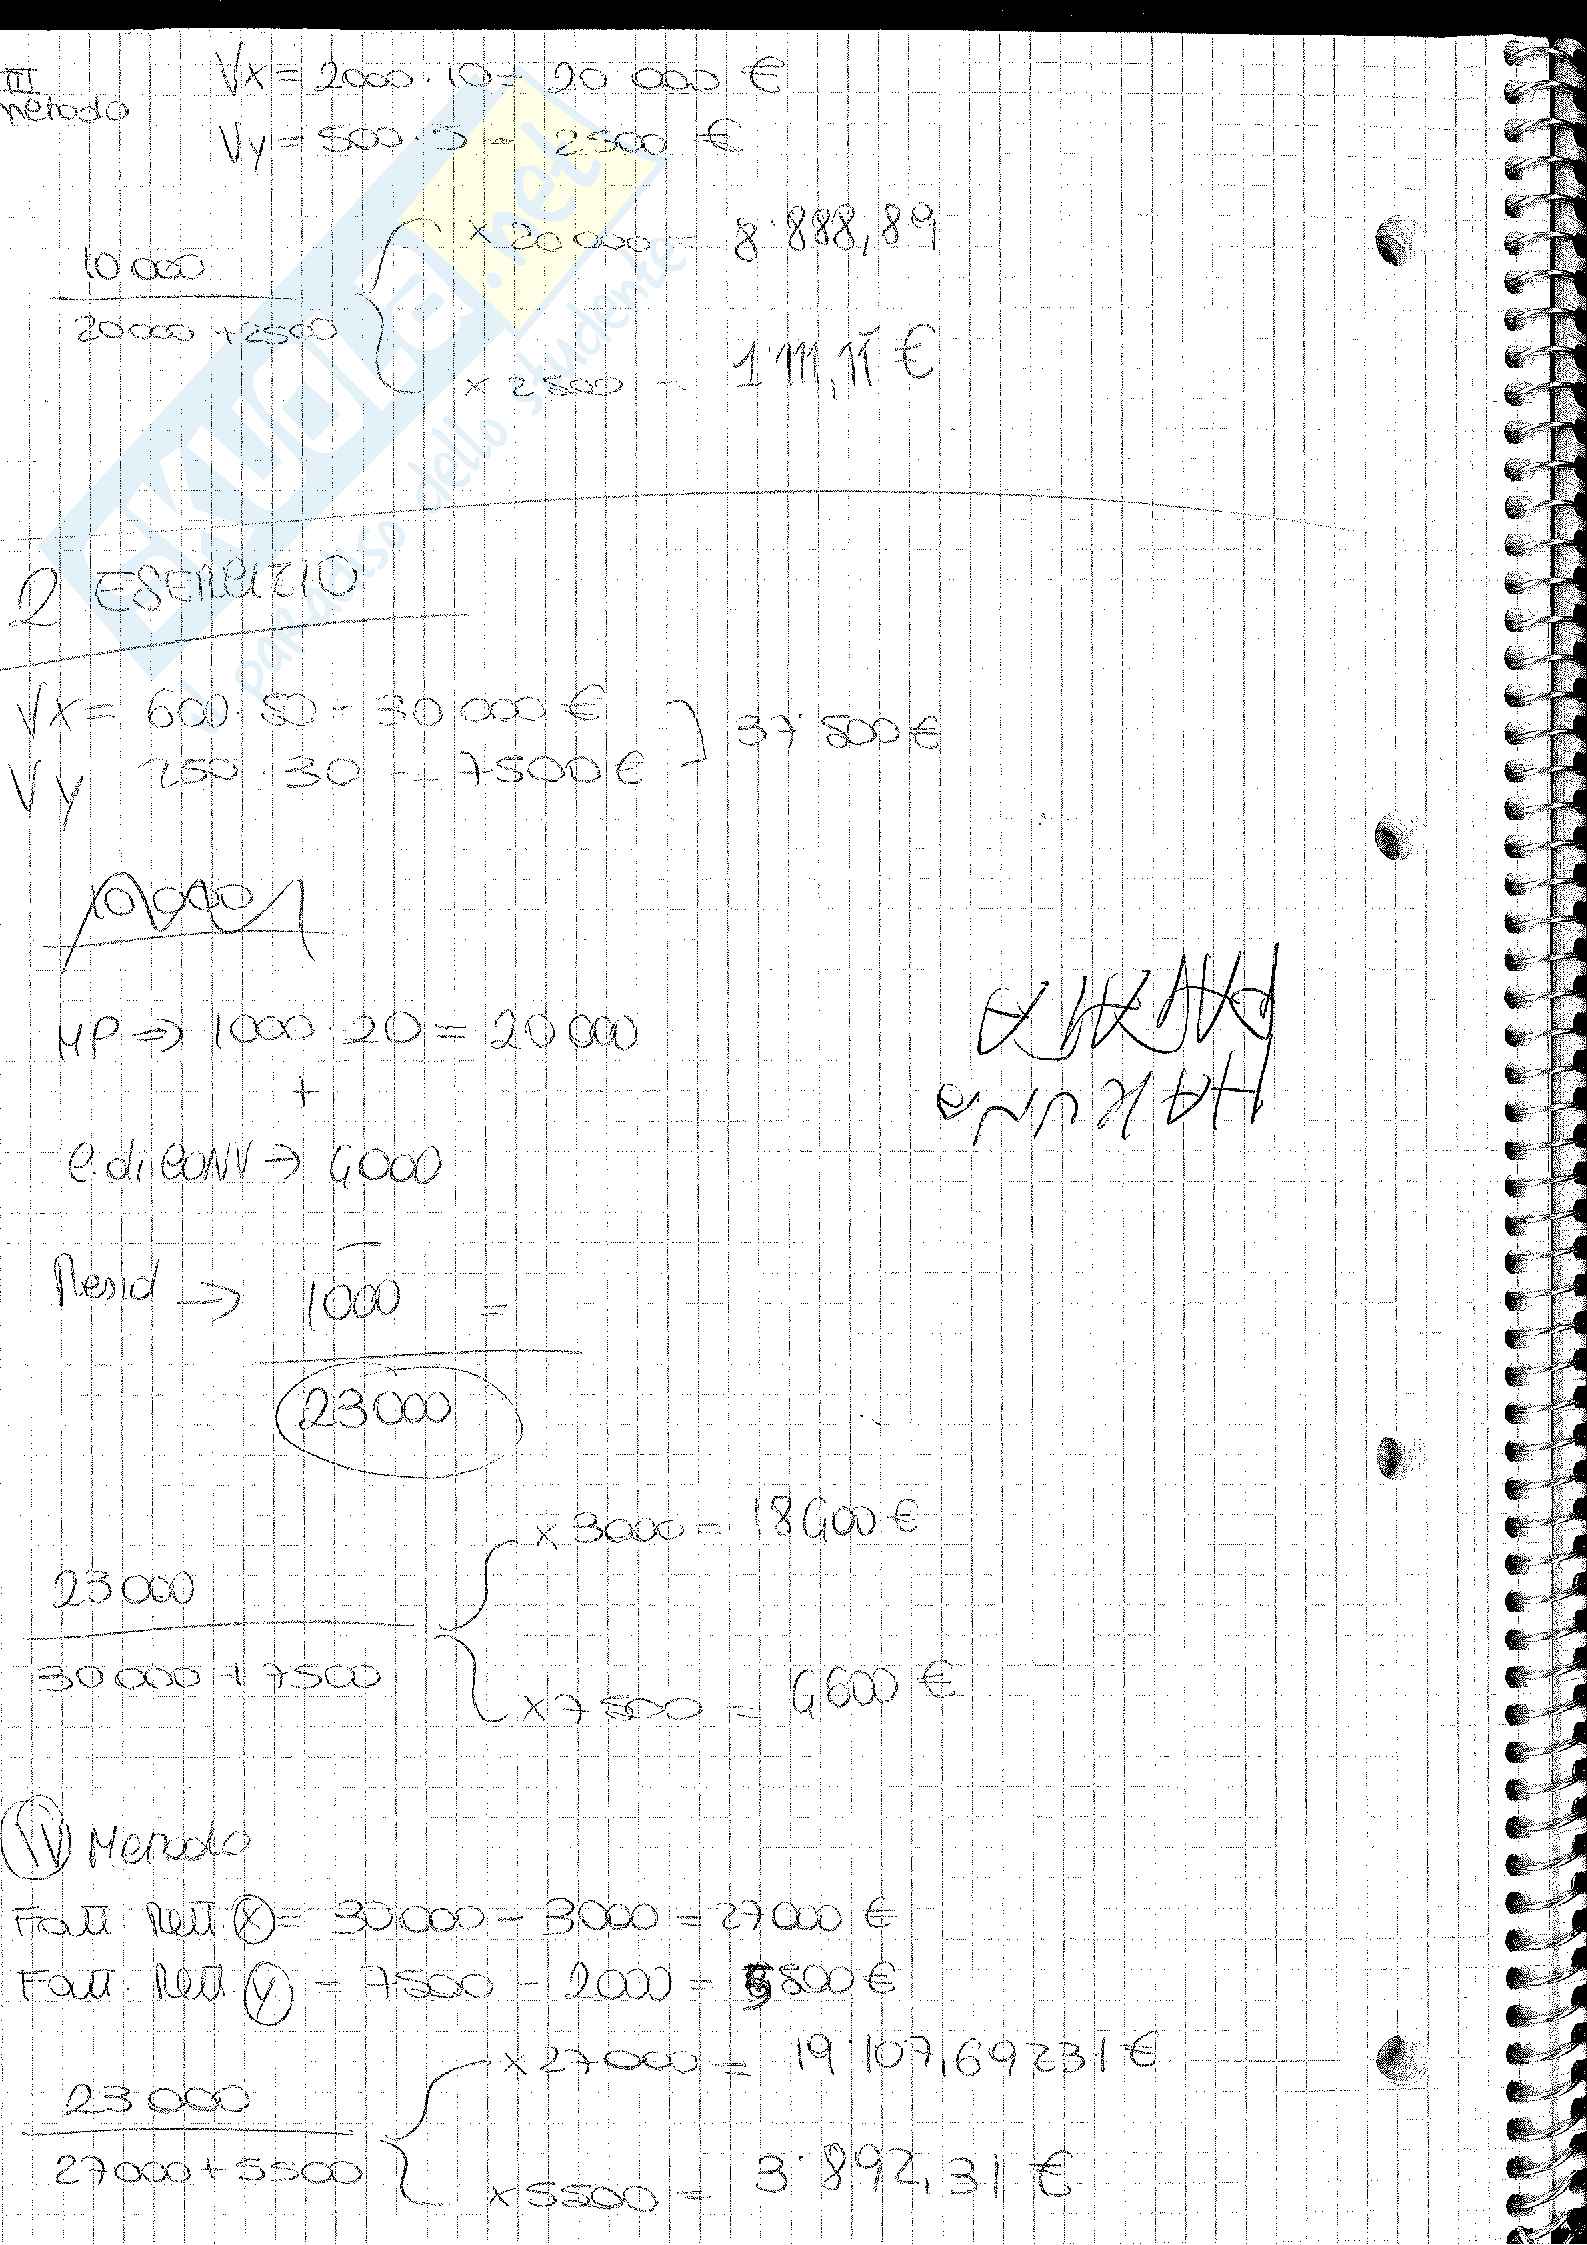 III
metodo
Vx = 2000 · 10 = 20 000 €
Vy = 500 · 5 = 2500 €
10 000
20000 + 2500
x 20 000 = 8˙888,89
x 2500 = 1˙111,11 €
2 ESERCIZIO
Vx = 600 · 50 = 30 000 € } 37˙500 €
Vy 250 · 30 = 7500 €
10 000
MP ⇒ 1000 · 20 = 20 000
+
C. di CONV → 4000
−
Resid → 1000 =
23 000
23 000
30 000 + 7500
x 3000 = 18 400 €
x 7500 = 4600 €
IV Metodo
Fatt. Rett. X = 30 000 − 3000 = 27 000 €
Fatt. Rett. Y = 7500 − 2000 = 5500 €
23 000
27 000 + 5500
x 27 000 = 19˙107,69231 €
x 5500 = 3˙892,31 €